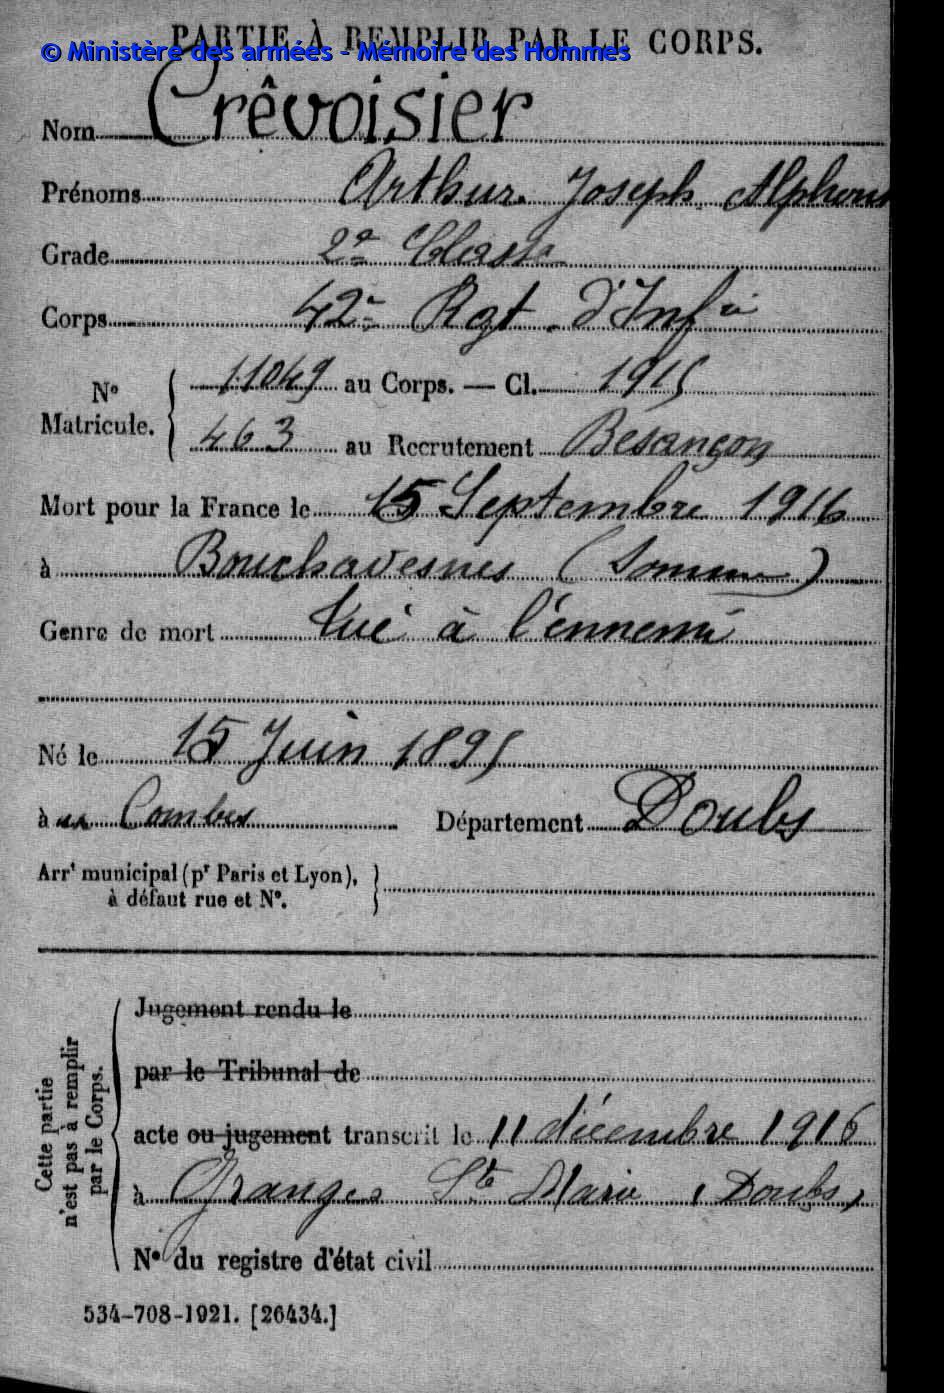 PARTIE À REMPLIR PAR LE CORPS.
© Ministère des armées - Mémoire des Hommes
Nom Crêvoisier
Prénoms Arthur Joseph Alphons
Grade 2e Classe
Corps 42e Rgt d'Infie
No Matricule. { 11049 au Corps. — Cl. 1915
463 au Recrutement Besançon
Mort pour la France le 15 Septembre 1916
à Bouchavesnes (Somme)
Genre de mort Tué à l'ennemi
Né le 15 Juin 1895
à Combes Département Doubs
Arrt municipal (pr Paris et Lyon), }
à défaut rue et No.
Cette partie
n'est pas à remplir
par le Corps.
Jugement rendu le
par le Tribunal de
acte ou jugement transcrit le 11 décembre 1916
à Granges Ste Marie (Doubs)
No du registre d'état civil
534-708-1921. [26434.]